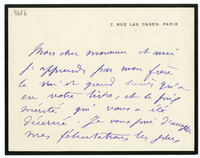 4686
7, RUE LAS CASES. PARIS
Mon cher monsieur et ami
J'apprends par mon frère
le vif et grand succès qu'a
eu votre livre, et le prix
mérité qui vous a été
décerné. Je vous prie d'accepter
mes félicitations les plus